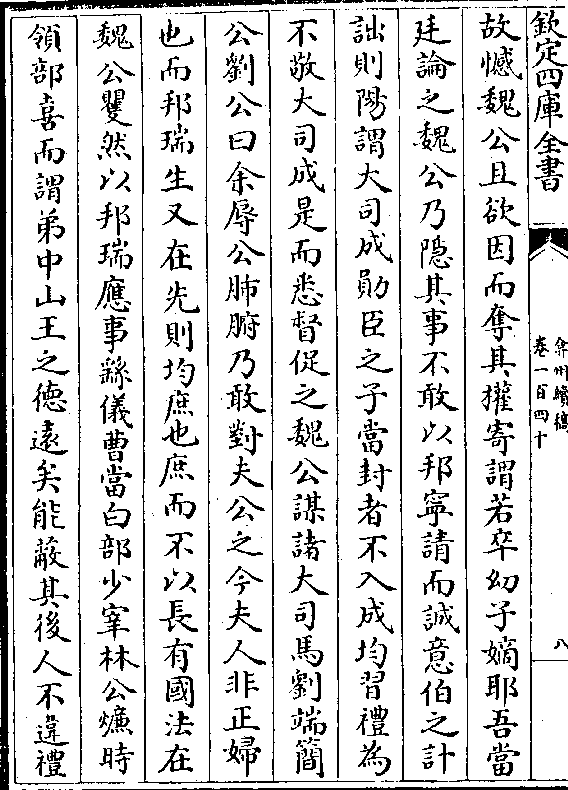 欽定四庫全書
弇州續稿
卷一百四十
八
故憾魏公且欲因而奪其權寄謂若卒幼子嫡耶吾當
廷論之魏公乃隱其事不敢以邦寧請而誠意伯之計
詘則陽謂大司成勛臣之子當封者不入成均習禮為
不敬大司成是而悉督促之魏公謀諸大司馬劉端簡
公劉公曰余辱公肺腑乃敢對夫公之今夫人非正婦
也而邦瑞生又在先則均庶也庶而不以長有國法在
魏公矍然以邦瑞應事繇儀曹當白部少宰林公爌時
領部喜而謂弟中山王之德遠矣能蔽其後人不違禮